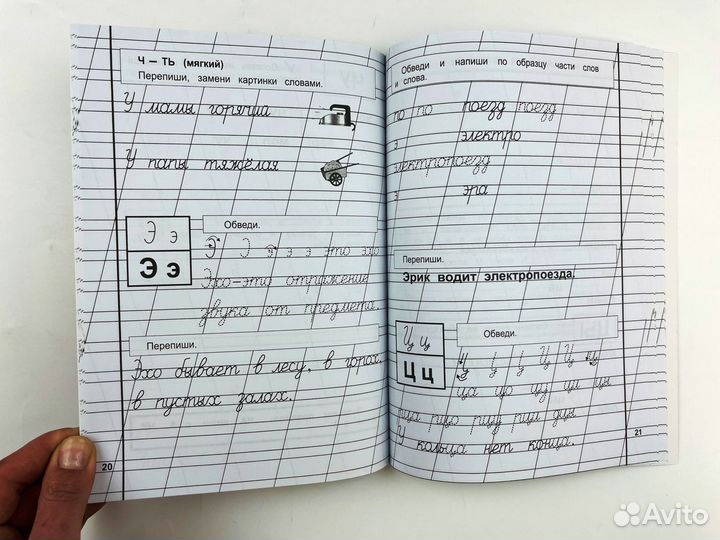 Ч – ТЬ (мягкий)
Перепиши, замени картинки словами.
У мамы горячий
У папы тяжёлая
Э э
Э э
Обведи.
Э Э э э э это эхо
Эхо-это отражение
звука от предмета.
Перепиши.
Эхо бывает в лесу, в горах,
в пустых залах.
20
Обведи и напиши по образцу части слов
и слова.
по по поезд поезд
э электро
электропоезд
э эра
Перепиши.
Эрик водит электропоезда.
Ц ц
Ц ц
Обведи.
Ц Ц ц
ца цо цу ци цы
У кольца нет конца.
21
Avito